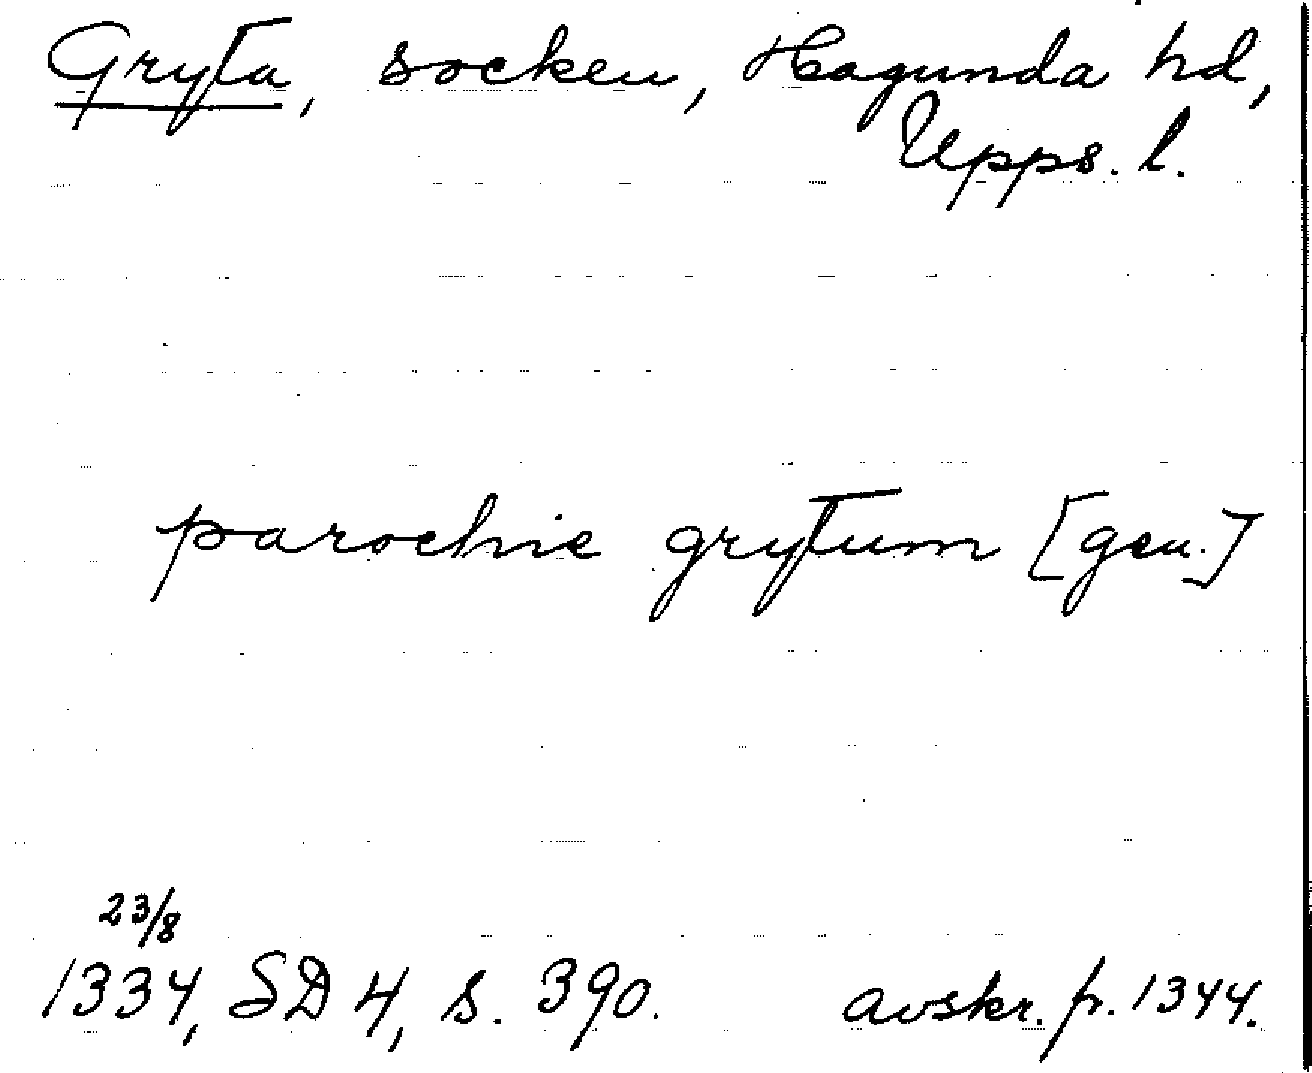 Gryta, socken, Hagunda hd,
Upps. l.
parochie grytum [gen.]
23/8
1334, SD 4, s. 390. avskr. p. 1344.